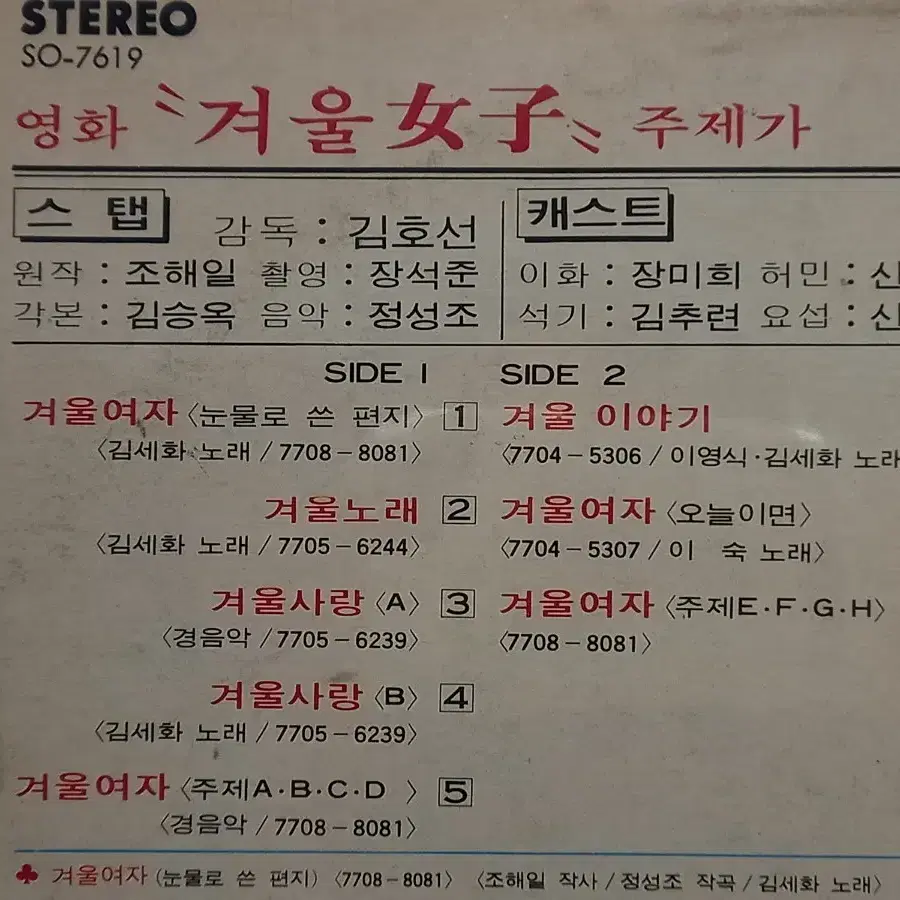 STEREO
SO-7619
영화 〝겨울女子〟 주제가
스 탭 감독 : 김호선
원작 : 조해일 촬영 : 장석준
각본 : 김승옥 음악 : 정성조
캐스트
이화 : 장미희 허민 : 신
석기 : 김추련 요섭 : 신
SIDE 1
겨울여자 〈눈물로 쓴 편지〉 1
〈김세화 노래 / 7708-8081〉
겨울노래 2
〈김세화 노래 / 7705-6244〉
겨울사랑 〈A〉 3
〈경음악 / 7705-6239〉
겨울사랑 〈B〉 4
〈김세화 노래 / 7705-6239〉
겨울여자 〈주제A·B·C·D 〉 5
〈경음악 / 7708-8081〉
SIDE 2
겨울 이야기
〈7704-5306 / 이영식·김세화 노래
겨울여자 〈오늘이면〉
〈7704-5307 / 이 숙 노래〉
겨울여자 〈주제E·F·G·H〉
〈7708-8081〉
♣ 겨울여자 (눈물로 쓴 편지) 〈7708-8081〉 〈조해일 작사 / 정성조 작곡 / 김세화 노래〉